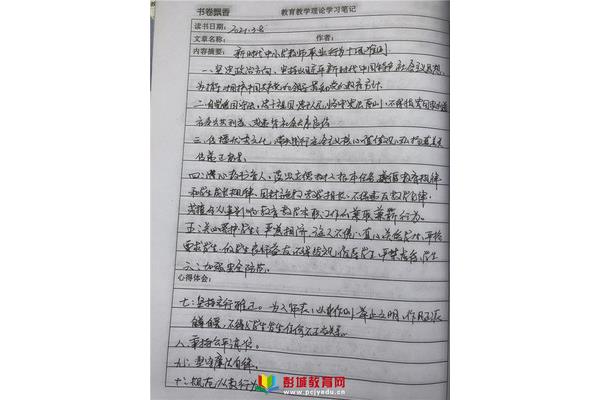 书卷飘香 教育教学理论学习笔记
读书日期：2021.3.8
文章名称： 作者：
内容摘要： 新时代中小学教师职业行为十项准则
一、坚定政治方向，坚持以习近平新时代中国特色社会主义思想
为指导，拥护中国共产党的领导，贯彻党的教育方针。
二、自觉爱国守法，忠于祖国，忠于人民，
三、传播优秀文化，带头践行社会主义核心价值观，弘扬真善美
传递正能量。
四：潜心教书育人，落实立德树人根本任务，遵循教育规律
和学生成长规律，因材施教，教学相长，不得违反教学纪律，
或擅自从事影响教育教学本职工作的兼职兼薪行为。
五：关心爱护学生，严慈相济，诲人不倦，真心关爱学生，严格
要求学生，做学生良师益友，不得歧视、侮辱学生，严禁虐待、
六：加强安全防范。
心得体会：
七：坚持言行雅正。为人师表，以身作则，举止文明，作风正派
自重自爱，不得与学生发生任何不正当关系。
八：秉持公平诚信。
九：坚守廉洁自律。
十：规范从教行为
彭城教育网
www.pcjyedu.cn